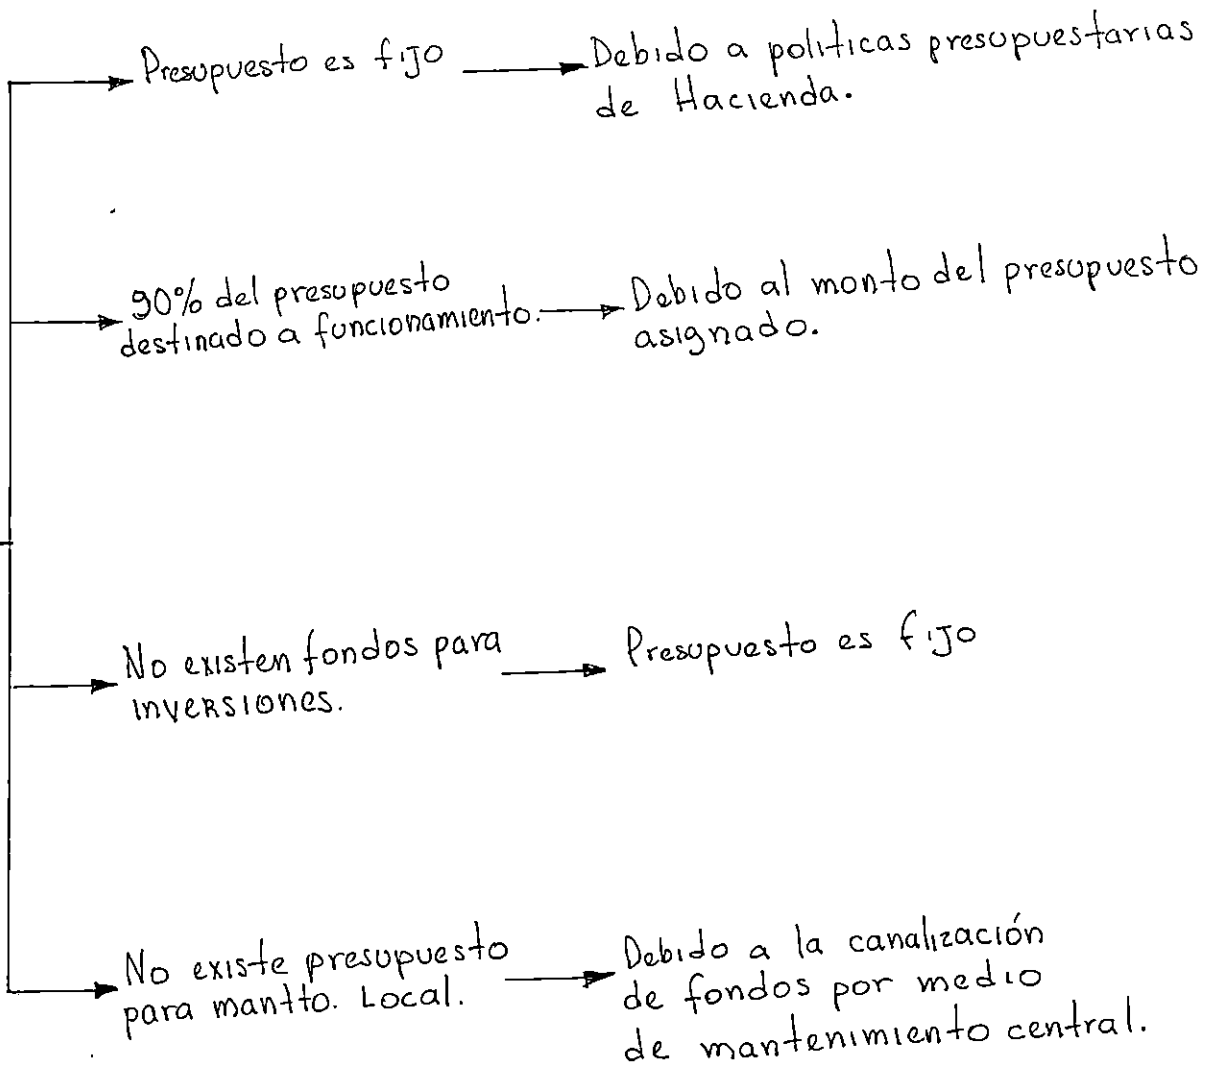 Presupuesto es fijo
Debido a politicas presupuestarias
de Hacienda.
90% del presupuesto
destinado a funcionamiento.
Debido al monto del presupuesto
asignado.
No existen fondos para
inversiones.
Presupuesto es fijo
No existe presupuesto
para mantto. Local.
Debido a la canalización
de fondos por medio
de mantenimiento central.